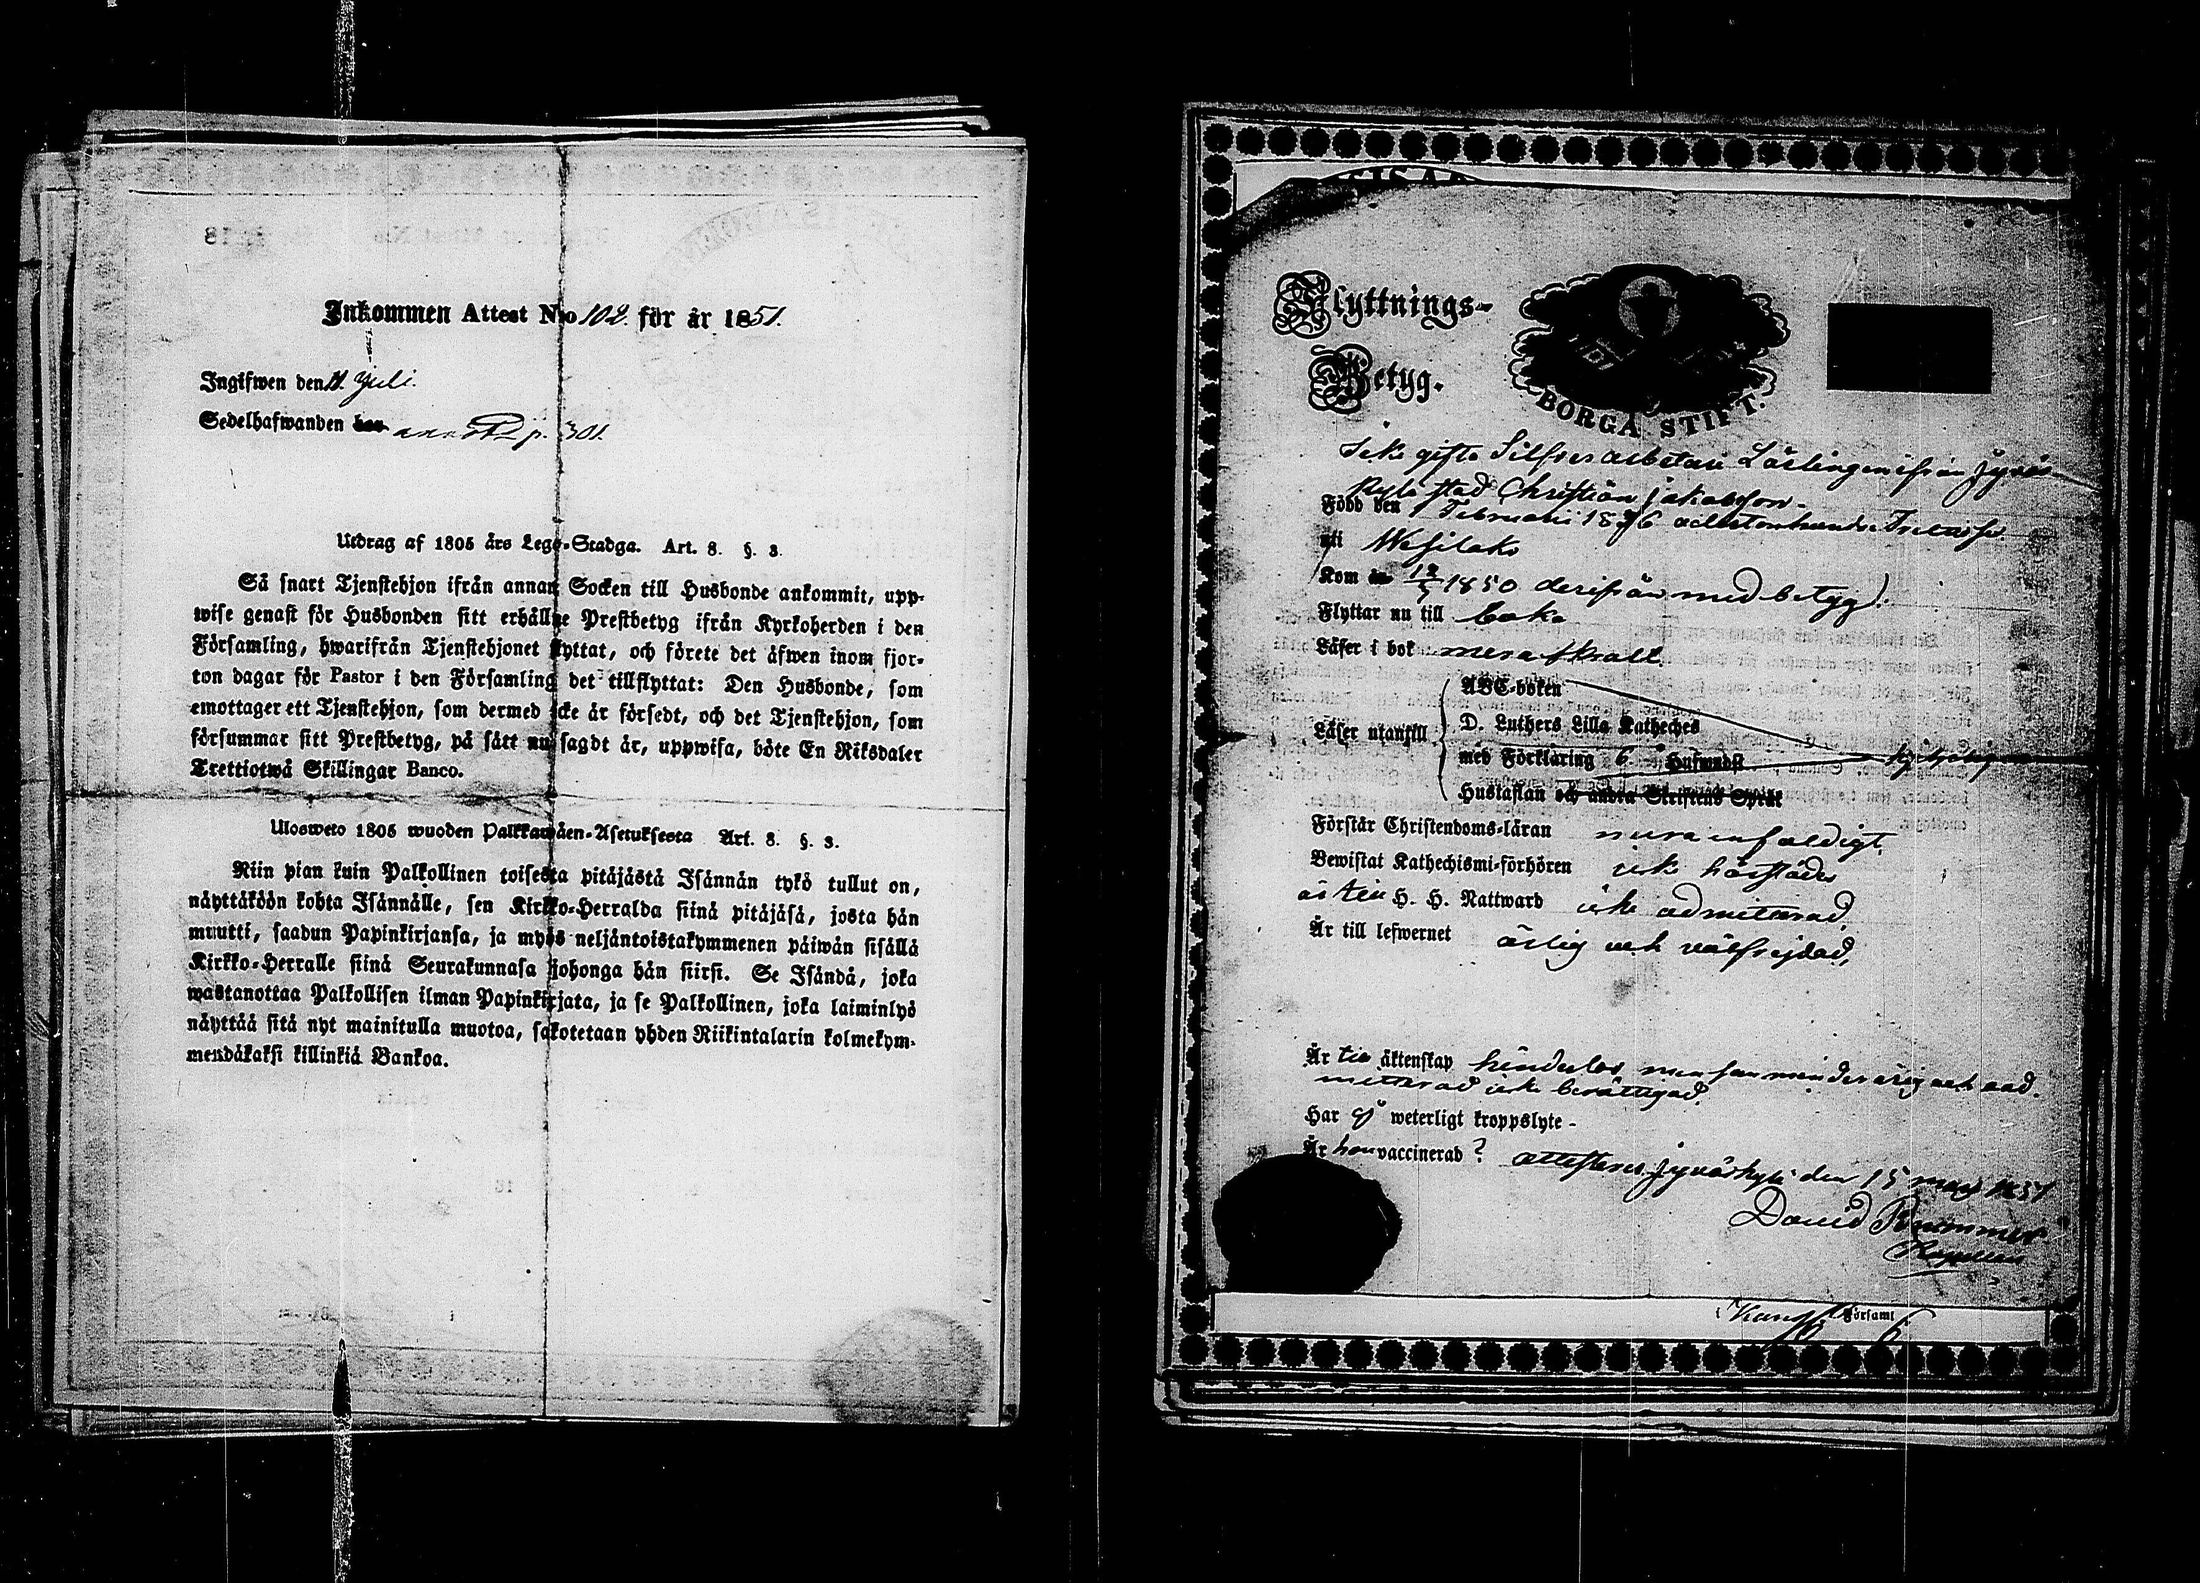 Inkommen Attest No 102. för år 1851.
Ingifwen den 11. Juli.
Sedelhafwanden p. 301.
Utdrag af 1805 års Lego-Stadga. Art. 8. §. 3.
Så snart Tjenstehjon ifrån annan Socken till Husbonde ankommit, upp-
wise genast för Husbonden sitt erhållne Prestbetyg ifrån Kyrkoherden i den
Församling, hwarifrån Tjenstehjonet flyttat, och förete det äfwen inom fjor-
ton dagar för Pastor i den Församling det tillflyttat: Den Husbonde, som
emottager ett Tjenstehjon, som dermed icke är försedt, och det Tjenstehjon, som
försummar sitt Prestbetyg, på sätt nu sagdt är, uppwisa, böte En Riksdaler
Trettiotwå Skillingar Banco.
Ulosweto 1805 wuoden Palkkawäen-Asetuksesta Art. 8. §. 3.
Niin pian kuin Palkollinen toisesta pitäjästä Isännän tykö tullut on,
näyttäköön kohta Isännälle, sen Kirkko-Herralda siinä pitäjäsä, josta hän
muutti, saadun Papinkirjansa, ja myös neljäntoistakymmenen päiwän sisällä
Kirkko-Herralle siinä Seurakunnasa johonga hän siirsi. Se Isändä, joka
wastanottaa Palkollisen ilman Papinkirjata, ja se Palkollinen, joka laiminlyö
näyttää sitä nyt mainitulla muotoa, sakotetaan yhden Riikintalarin kolmekym-
mendäkaksi killinkiä Bankoa.
Flyttnings-
Betyg.
BORGÅ STIFT.
Icke gifte Silfverarbetare Lärlingen ifrån Jyväs-
kylä stad Christian Jakobsson
Född den Februari 1836 adertonhundra Trettiosex
uti Wesilaks
Kom 12/7 1850 derifrån med betyg.
Flyttar nu till
Läser i bok mera skrall
Läser utantill
ABC-boken
D. Luthers Lilla Katheches
med Förklaring 6 Hufwudst
Hustaflan och andra Skriftens Språk
Förstår Christendoms-läran mera enfaldigt.
Bewistat Kathechismi-förhören icke härstädes
är till H. H. Nattward icke admitterad,
Är till lefwernet ärlig och välfrejdad,
Är till äktenskap hinderlös men såsom minderårig och oad-
mitterad icke berättigad.
Har ej weterligt kroppslyte -
Är han vaccinerad? attesteras Jyväskylä den 15 maj 1851
David
Församl